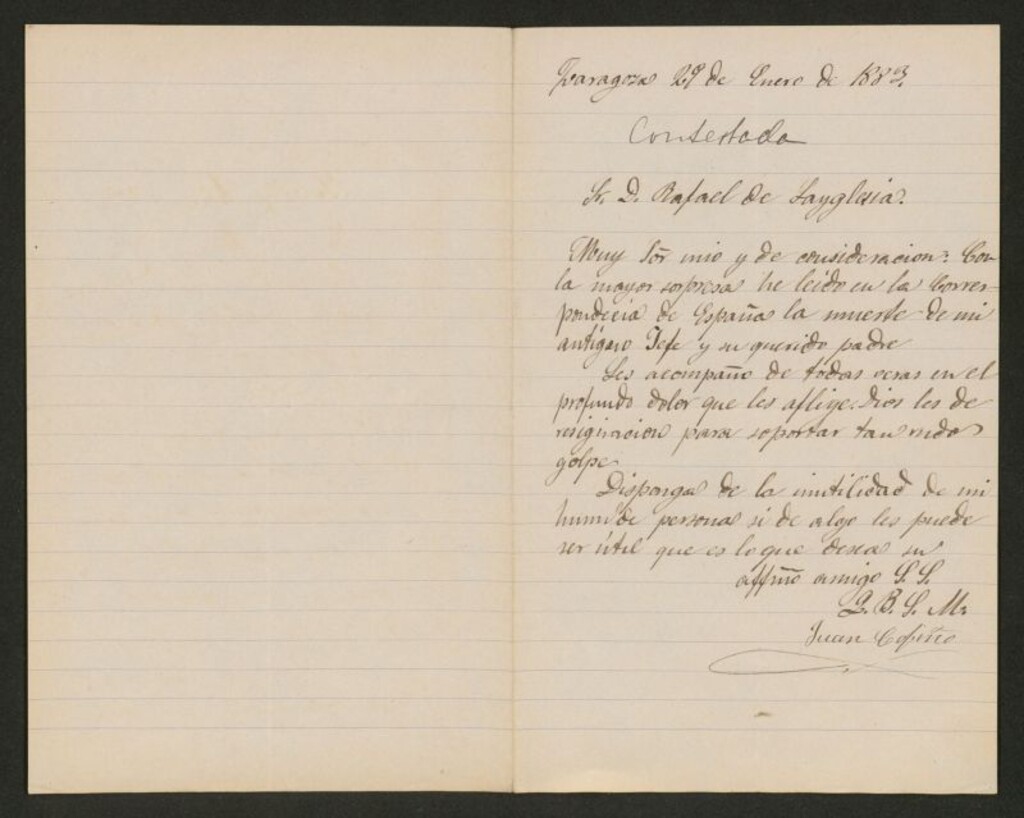 Zaragoza 29 de Enero de 1883.
Contestada
Sr. D. Rafael de Layglesia.
Muy Sõr mio y de consideracion: Con
la mayor sorpresa he leido en la Corres-
pondecia de España la muerte de mi
antíguo Jefe y su querido padre
Les acompaño de todas veras en el
profundo dolor que les aflije. Dios les de
resignacion para soportar tan rudo
golpe
Disponga de la inutilidad de mi
humilde persona si de algo les puede
ser útil que es lo que desea su
affmo amigo S. S.
Q. B. S. M.
Juan